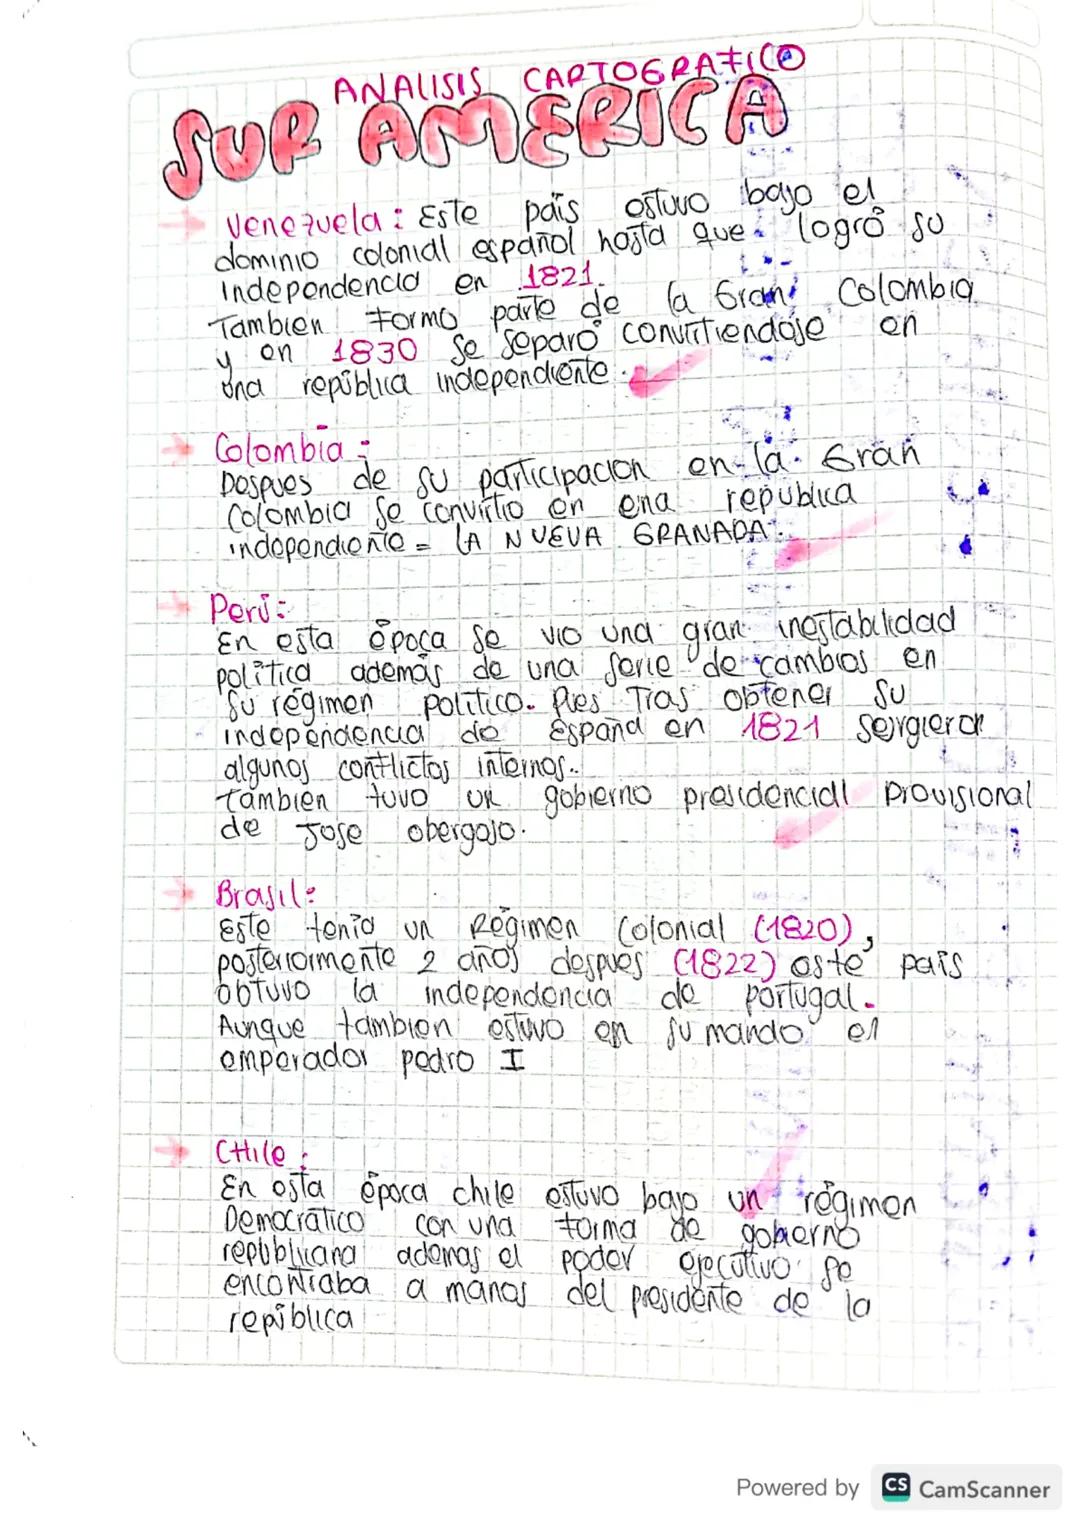 ANALISIS CARTOGRAFICO
SUR AMERICA
Venezuela: Este país estuvo bajo el
dominio colonial español hasta que logró su
independencia en 1821.
Tambien formo parte de la Gran Colombia
y en 1830 se separó convirtiendose en
una república independiente.
Colombia:
Despues de su participacion en la Gran
Colombia se convirtio en una republica
independiente = LA NUEVA GRANADA.
Perú:
En esta época se vio una gran inestabilidad
política además de una serie de cambios en
su régimen político. Pues tras obtener su
independencia de España en 1821 surgieron
algunos conflictos internos.
Tambien tuvo un gobierno presidencial provisional
de Jose obergoso.
Brasil:
Este tenia un Régimen Colonial (1820),
posteriormente 2 años despues (1822) este país
obtuvo la independencia de portugal.
Aunque tambien estuvo en su mando el
emperador pedro I
CHile:
En esta época chile estuvo bajo un régimen
Democrático con una forma de gobierno
republicana ademas el poder ejecutivo se
encontraba a manos del presidente de la
república
Powered by CS CamScanner